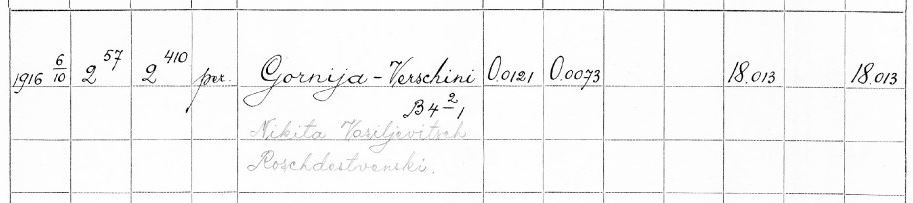 1916 6/10 2 57 2 410 per. Gornija-Verschini 0.0121 0.0073 18.013 18.013
B4 2/1
Nikita Vasiljevitsch
Roschdestvenski.